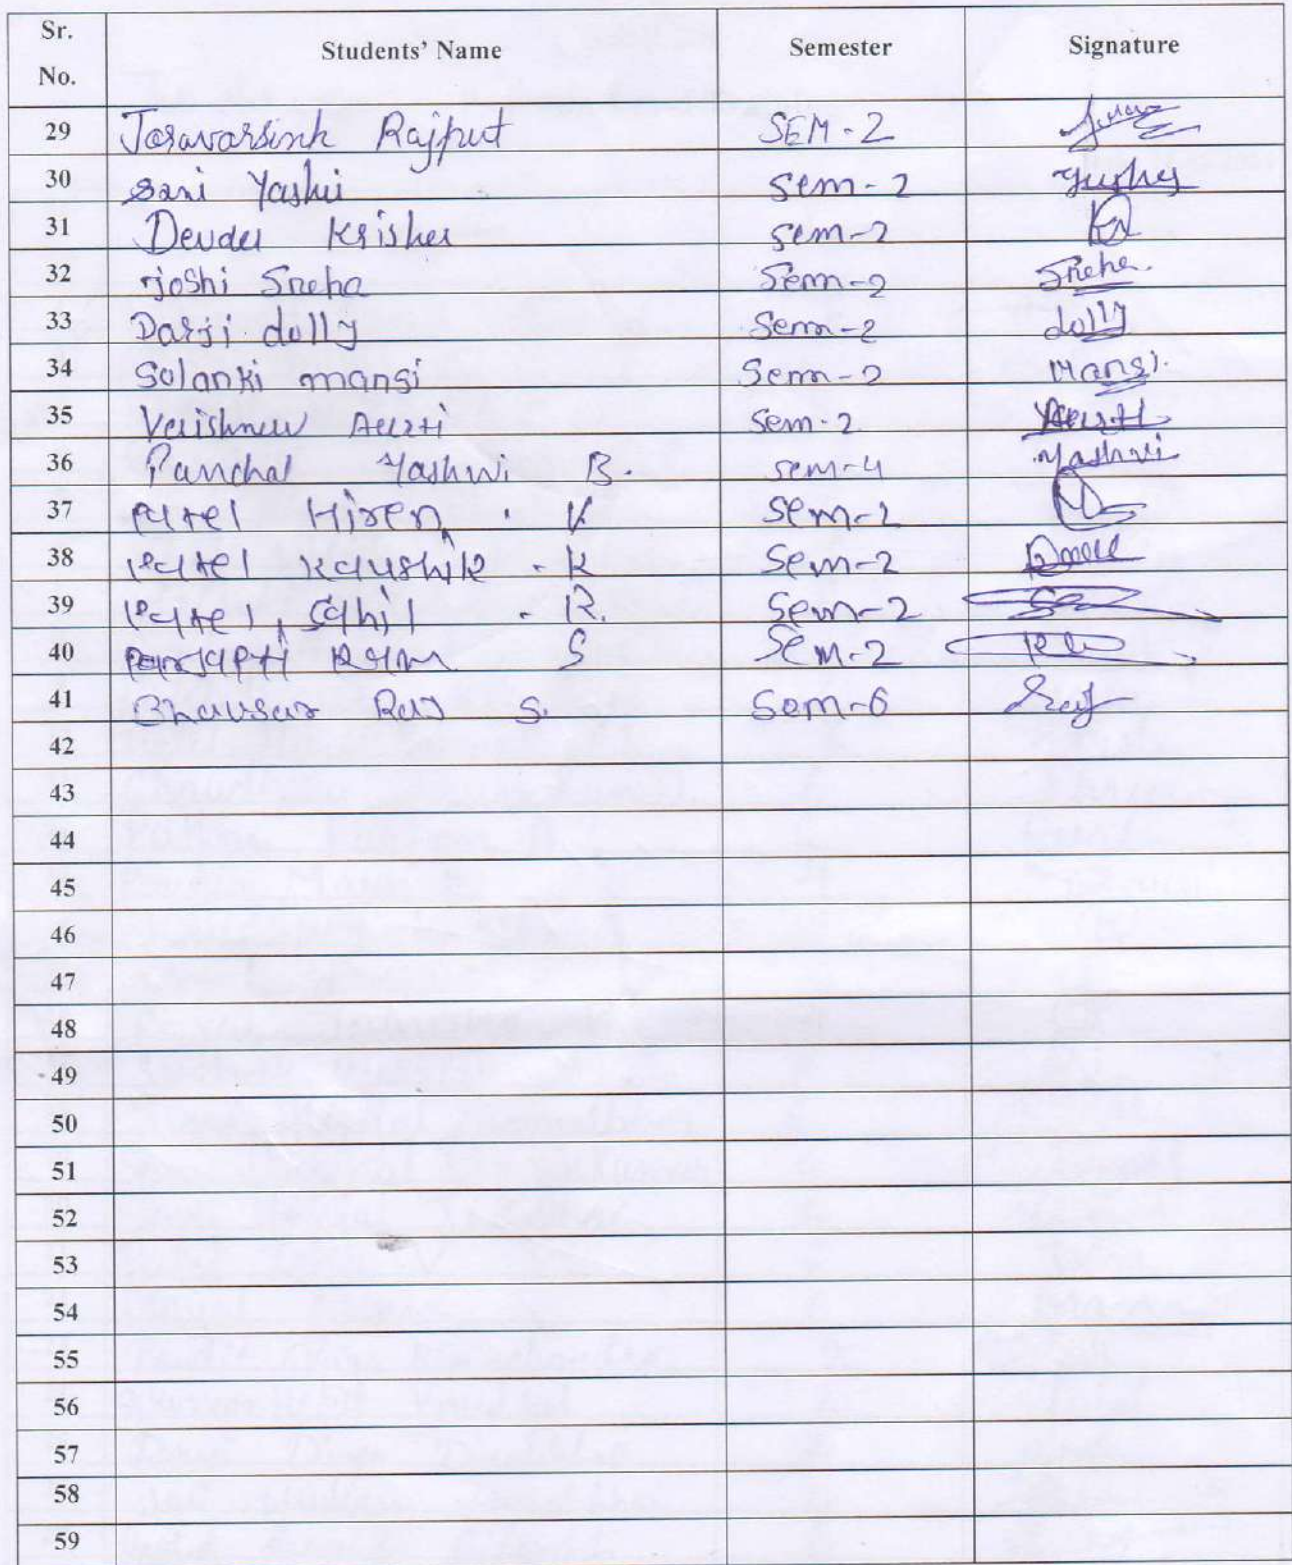 Sr. No. Students' Name Semester Signature
29 Joravarsinh Rajput SEM-2
30 Soni Yashvi Sem-2
31 Devda Krisha Sem-2
32 Joshi Sneha Sem-2 Sneha.
33 Darji dolly Sem-2 dolly
34 Solanki mansi Sem-2 Mansi.
35 Vaishnav Aarti Sem-2 Aarti
36 Panchal Yashvi B. Sem-4 Yashvi
37 Patel Hiren . K Sem-2
38 Patel Kaushik . K Sem-2
39 Patel Sahil . R. Sem-2
40 Ram S Sem-2
41 Bhavsar Raj S. Sem-6 Raj
42
43
44
45
46
47
48
49
50
51
52
53
54
55
56
57
58
59